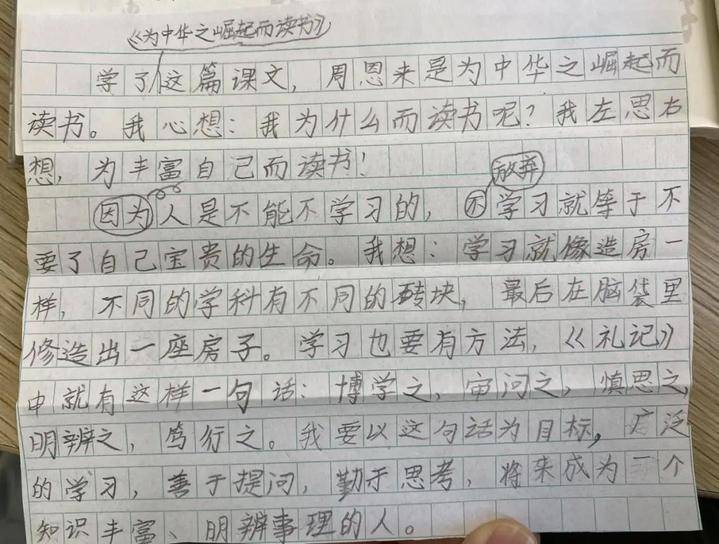 《为中华之崛起而读书》
学了这篇课文，周恩来是为中华之崛起而
读书。我心想：我为什么而读书呢？我左思右
想，为丰富自己而读书！
放弃
因为人是不能不学习的，不学习就等于不
要了自己宝贵的生命。我想：学习就像造房一
样，不同的学科有不同的砖块，最后在脑袋里
修造出一座房子。学习也要有方法，《礼记》
中就有这样一句话：博学之，审问之，慎思之，
明辨之，笃行之。我要以这句话为目标，广泛
的学习，善于提问，勤于思考，将来成为一个
知识丰富、明辨事理的人。